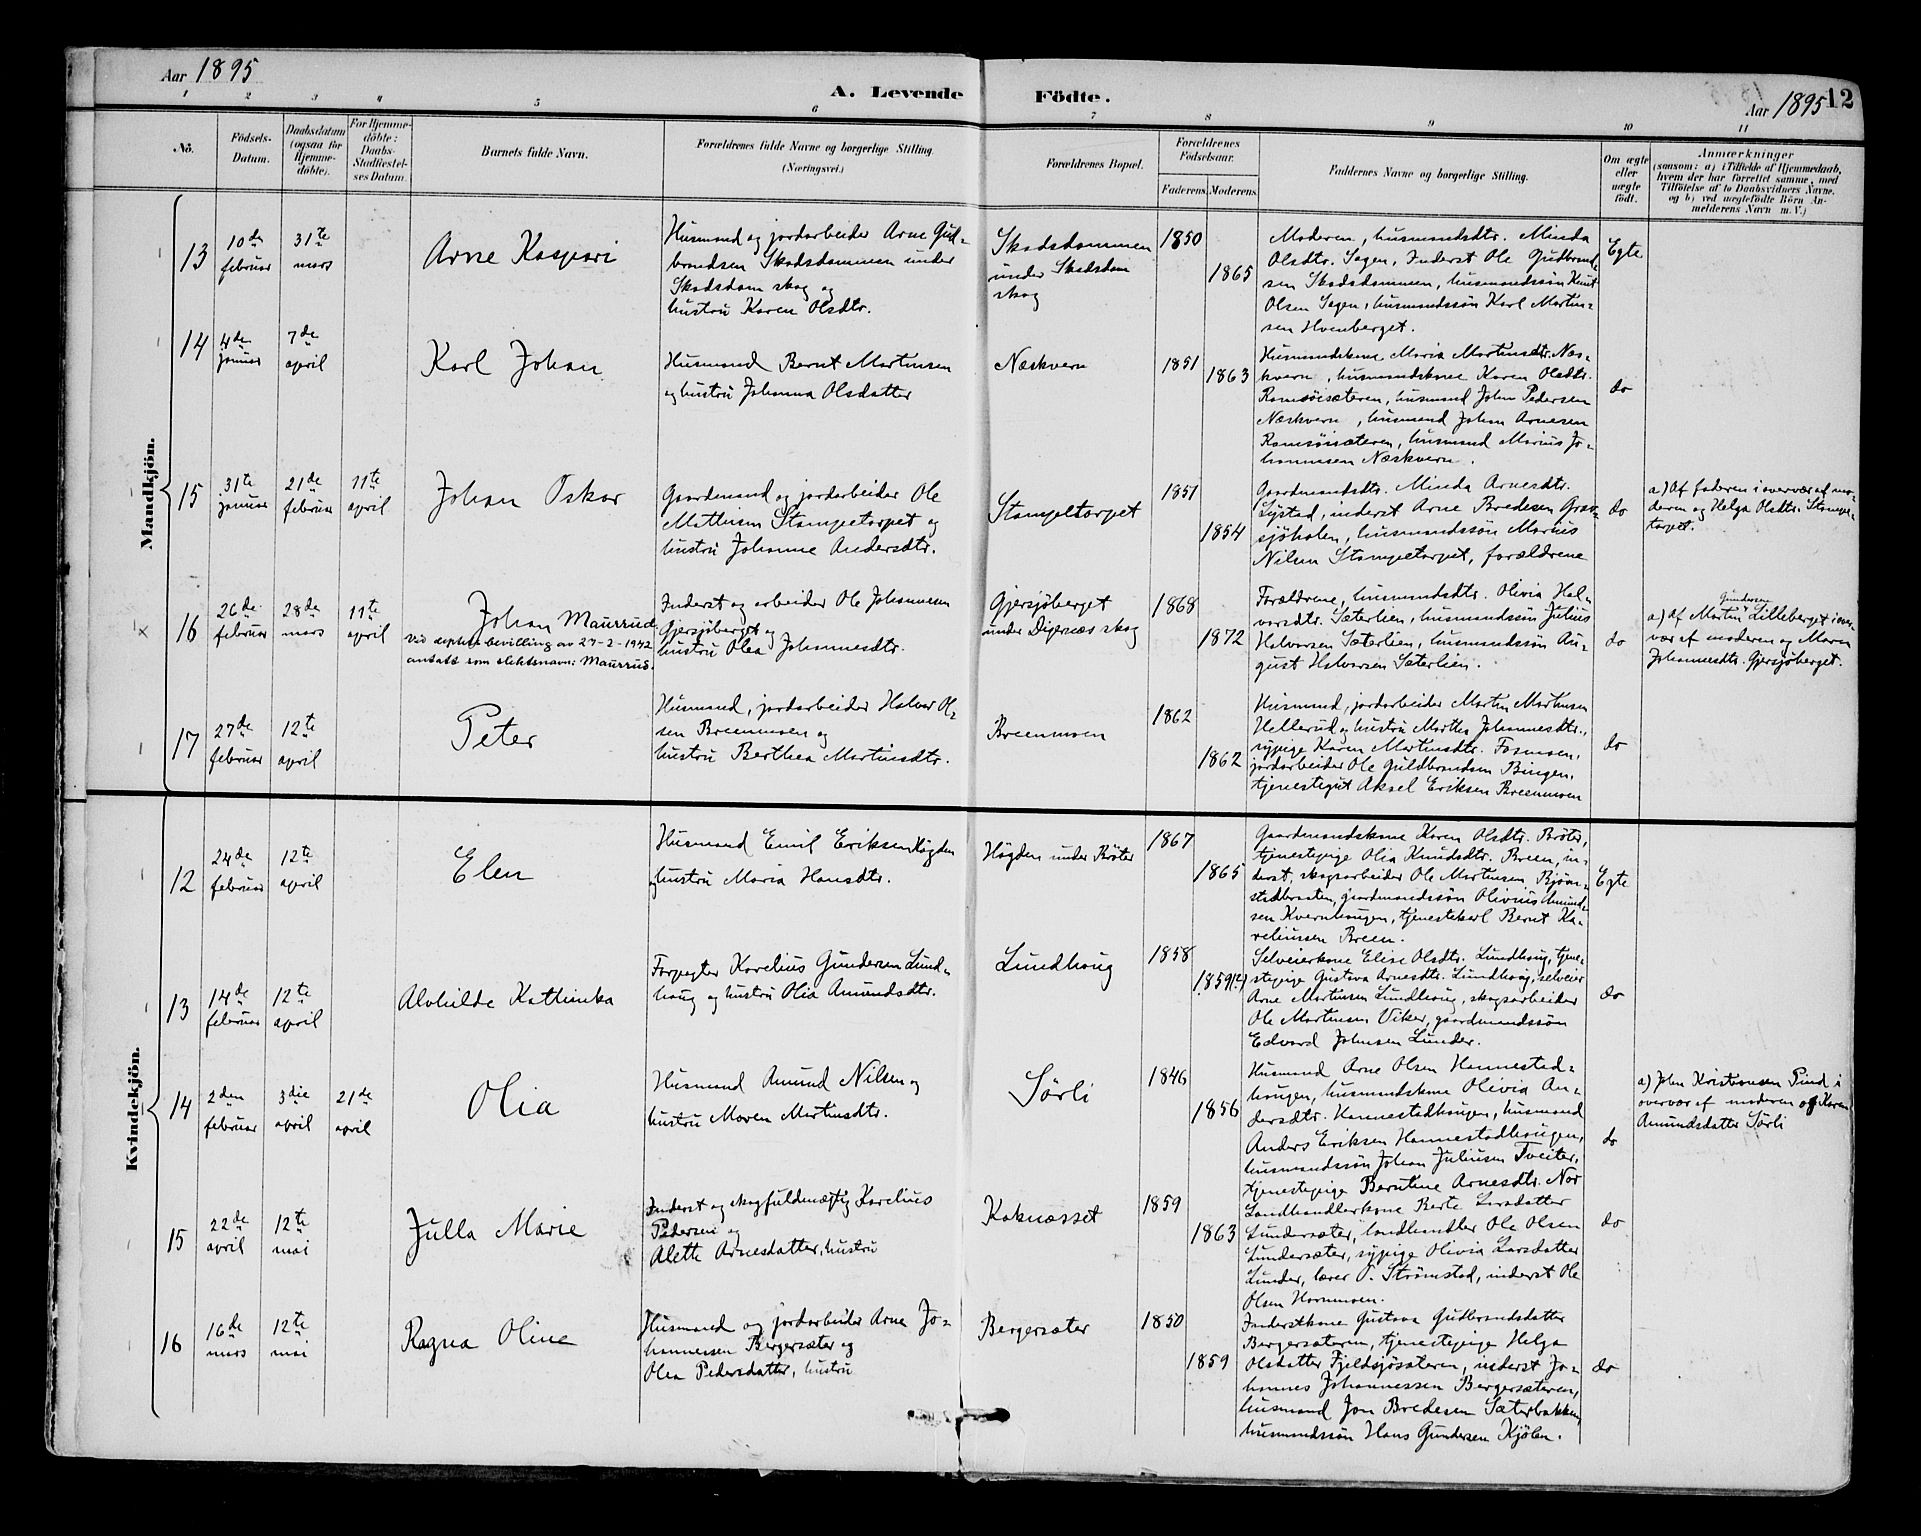 Aar 1895
A. Levende Födte.
Aar 1895
12
1 2 3 4 5 6 7 8 9 10 11
No.
Födsels-
Datum.
Daabsdatum
(ogsaa for
Hjemme-
döbte).
For Hjemme-
döbte:
Daabs-
Stadfæstel-
ses Datum.
Barnets fulde Navn.
Forældrenes fulde Navne og borgerlige Stilling.
(Næringsvei.)
Forældrenes Bopæl.
Forældrenes
Födselsaar.
Faderens.
Moderens.
Faddernes Navne og borgerlige Stilling.
Om ægte
eller
uægte
födt.
Anmærkninger
(saasom: a) i Tilfælde af Hjemmedaab,
hvem der har forrettet samme, med
Tilföielse af to Daabsvidners Navne,
og b) ved uægtefödte Börn An-
melderens Navn m. V.)
Mandkjön.
13
10de
februar
31te
mars
Arne Kaspari
Husmand og jordarbeider Arne Gud-
brandsen Skadsdammen under
Skadsdam skog og
hustru Karen Olsdtr.
Skadsdammen
under Skadsdam
skog
1850
1865
Moderen, husmandsdtr. Minda
Olsdtr. Sagen, Inderst Ole Gudbrand-
sen Skadsdammen, husmandssön Knut
Olsen Sagen, husmandssön Karl Martin-
sen Hvenberget.
Egte
14
4de
januar
7de
april
Karl Johan
Husmand Bernt Martinsen
og hustru Johanna Olsdatter
Næskvern
1851
1863
Husmandskone Maria Martinsdtr. Næs-
kvern, husmandskone Karen Olsdtr.
Ramsöisæteren, husmand John Pedersen
Næskvern, husmand Johan Arnesen
Ramsöisæteren, husmand Marius Jo-
hannesen Næskvern.
do
15
31te
januar
21de
februar
11te
april
Johan Oskar
Gaardmand og jordarbeider Ole
Mathisen Stampetorpet og
hustru Johanne Andersdtr.
Stampetorpet
1851
1854
Gaardmandsdtr. Minda Arnesdtr.
Systad, inderst Arne Bredesen Grav-
sjöholen, husmandssön Marius
Nilsen Stampetorpet, forældrene
do
a) Af faderen i overvær af mo-
deren og Helga Olsdtr. Stampe-
torpet.
x
16
26de
februar
28de
mars
11te
april
Johan Maurrud,
vid depbevilling av 27-2-1942
antatt som slektsnavn: Maurrud.
Inderst og arbeider Ole Johannesen
Gjersjöberget og
hustru Olea Johannesdtr.
Gjersjöberget
under Digernæs skog
1868
1872
Forældrene, husmandsdtr. Olivia Hal-
vorsdtr. Sæterlien, husmandssön Julius
Halvorsen Sæterlien, husmandssön Au-
gust Halvorsen Sæterlien.
do
a) Af Martin Gundersen Lilleberget i over-
vær af moderen og Maren
Johannesdtr. Gjersjöberget.
17
27de
februar
12te
april
Peter
Husmand, jordarbeider Halvor Ol-
sen Breenmoen og
hustru Berthea Martinsdtr.
Breenmoen
1862
1862
Husmand, jordarbeider Martin Martinsen
Hellerud og hustru Marthe Johannesdtr.,
sypige Karen Martinsdtr. Fosmoen,
jordarbeider Ole Guldbrandsen Bingen,
tjenestegut Aksel Eriksen Breenmoen
do
Kvindekjön.
12
24de
februar
12te
april
Elen
Husmand Emil Eriksen Högden
og hustru Maria Hansdtr.
Högden under Bröter
1867
1865
Gaardmandskone Karen Olsdtr. Bröter,
tjenestepige Olia Knudsdtr. Breen, in-
derst, skogsarbeider Ole Martinsen Björn-
stadbraaten, gaardmandssön Olivius Amund-
sen Kvernhaugen, tjenestekarl Bernt Ka-
reliussen Breen.
Egte
13
14de
februar
12te
april
Alvhilde Kathinka
Forpagter Karelius Gundersen Lund-
haug og hustru Olia Amundsdtr.
Lundhaug
1858
1859(?)
Selveierkone Elise Olsdtr. Lundhaug, tjene-
stepige Gustava Arnesdtr. Lundhaug, selveier
Arne Martinsen Lundhaug, skogsarbeider
Ole Martinsen Viker, gaardmandssön
Edvard Johnsen Lunder.
do
14
2den
februar
3die
april
21de
april
Olia
Husmand Amund Nilsen og
hustru Maren Martinsdtr.
Sørli
1846
1856
Husmand Arne Olsen Hannestad-
haugen, husmandskone Olivia An-
dersdtr. Hannestadhaugen, husmand
Anders Eriksen Hannestadhaugen,
husmandssön Johan Juliusen Tveiter,
tjenestepige Berntine Arnesdtr. Nor
do
a) John Kristiansen Pind i
overvær af moderen og Karen
Amundsdatter Sørli
15
22de
april
12te
mai
Julla Marie
Inderst og skogfuldmægtig Karelius
Pedersen og
Alette Arnesdatter, hustru
Kaknæsset
1859
1863
Landhandlerkone Berte Larsdatter
Lundersæter, landhandler Ole Olsen
Lundersæter, sypige Olivia Larsdatter
Lunder, lærer O. Strømstad, inderst Ole
Olsen Hornmoen.
do
16
16de
mars
12te
mai
Ragna Oline
Husmand og jordarbeider Arne Jo-
hannesen Bergersæter og
Olea Pedersdatter, hustru
Bergersæter
1850
1859
Inderstkone Gustava Gudbrandsdatter
Bergersæteren, tjenestepige Helga
Olsdatter Fjeldsjösæteren, inderst Jo-
hannes Johannessen Bergersæteren,
husmand Jon Bredesen Sæterbakken,
husmandssön Hans Gundersen Kjölen.
do